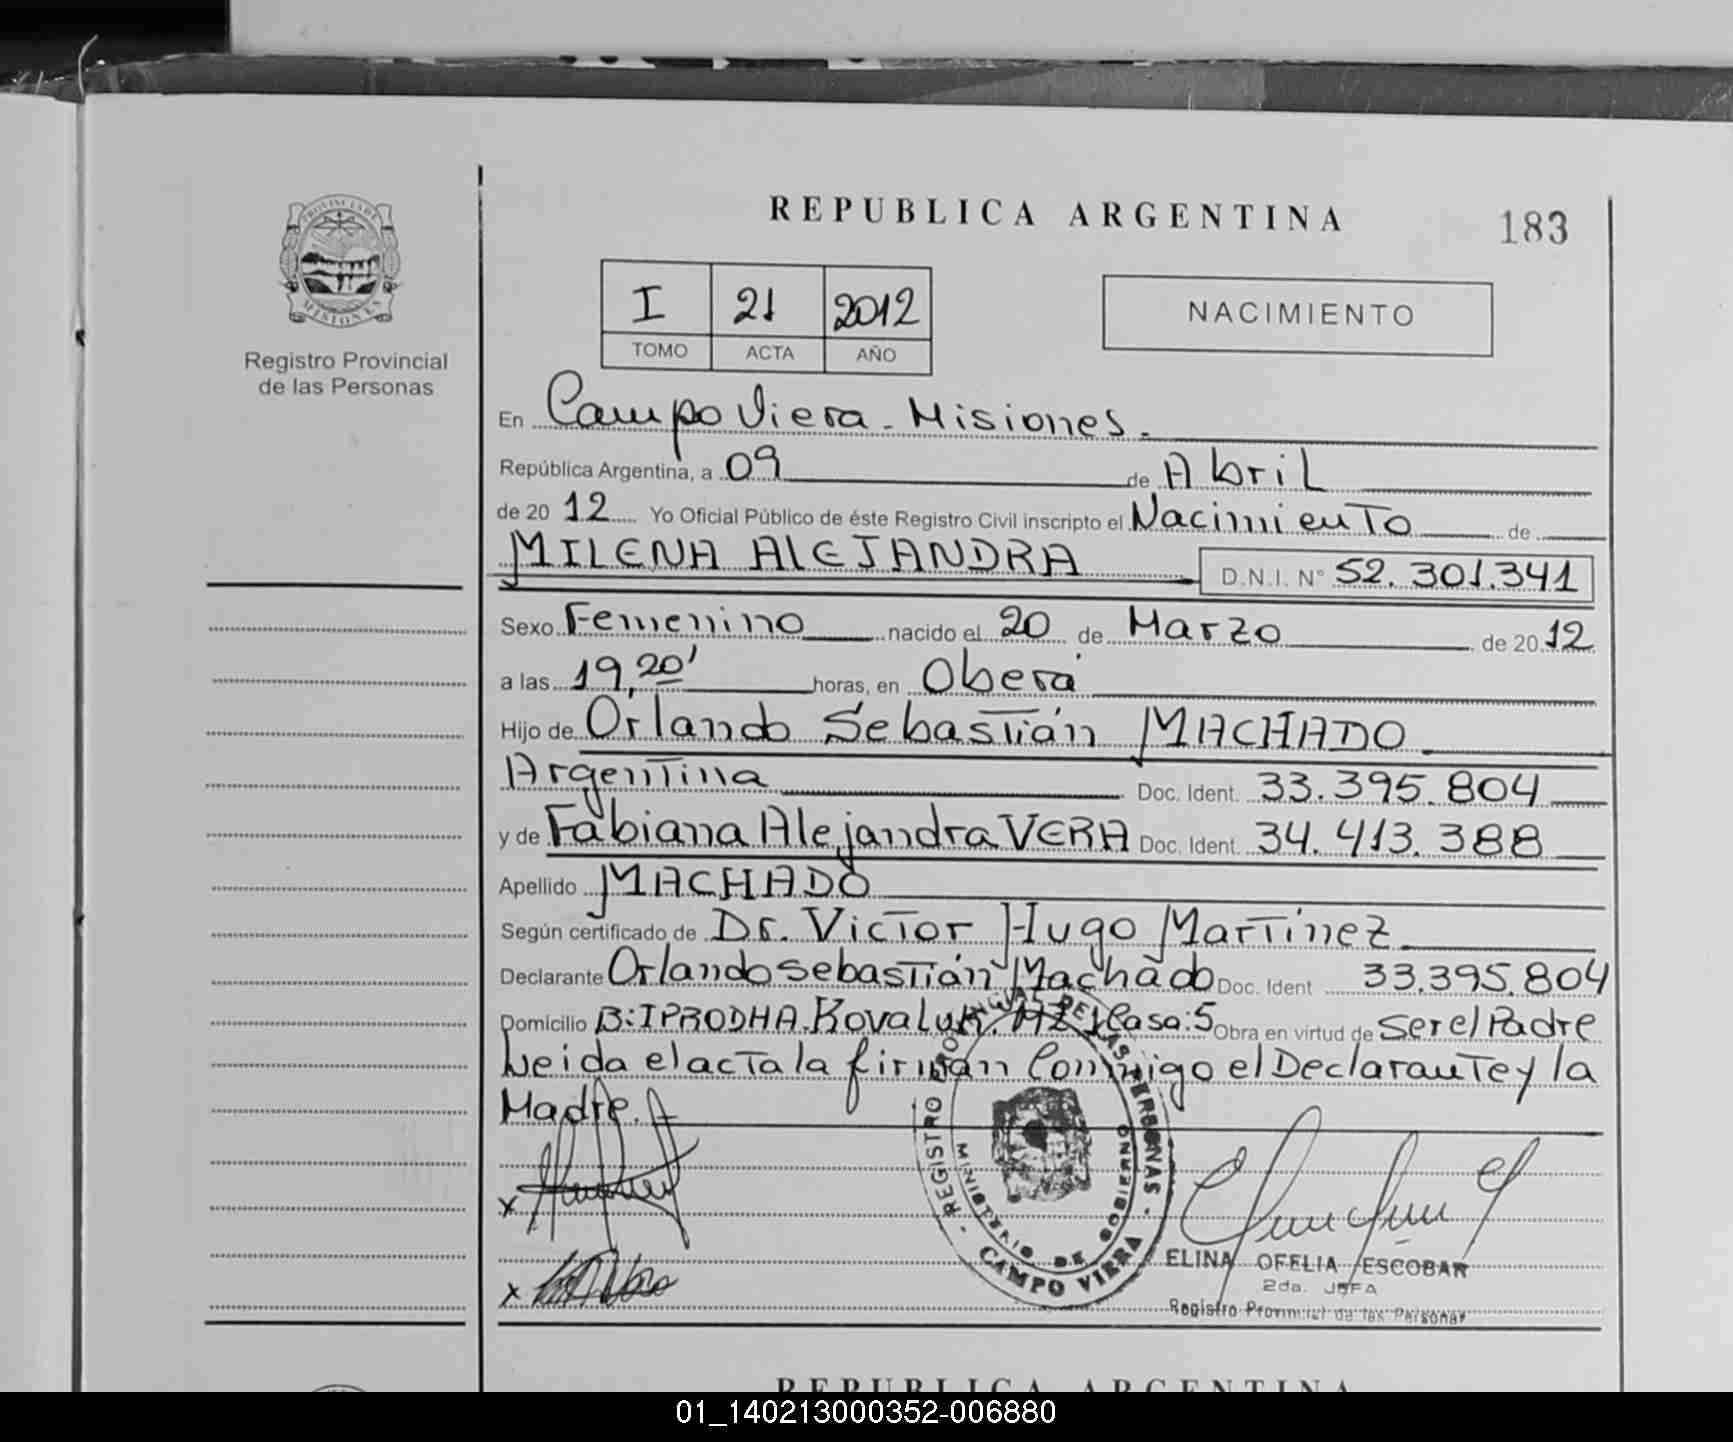 PROVINCIA DE
MISIONES
Registro Provincial
de las Personas
REPUBLICA ARGENTINA
183
I 21 2012
TOMO ACTA AÑO
NACIMIENTO
En Campo Viera - Misiones.
República Argentina, a 09 de Abril
de 20 12 Yo Oficial Público de éste Registro Civil inscripto el Nacimiento de
MILENA ALEJANDRA D.N.I. N° 52.301.341
Sexo Femenino nacido el 20 de Marzo de 20 12
a las 19,20' horas, en Oberá
Hijo de Orlando Sebastián MACHADO
Argentina Doc. Ident. 33.395.804
y de Fabiana Alejandra VERA Doc. Ident. 34.413.388
Apellido MACHADO
Según certificado de Dr. Victor Hugo Martínez
Declarante Orlando Sebastián Machado Doc. Ident 33.395.804
Domicilio B:IPRODHA. Kovaluk. MZ 1 Casa:5 Obra en virtud de ser el Padre
Leida el acta la firman Conmigo el Declarante y la
Madre.
REGISTRO PROVINCIAL DE LAS PERSONAS -
MINISTERIO DE GOBIERNO
CAMPO VIERA
x
x
ELINA OFELIA ESCOBAR
2da. JEFA
Registro Provincial de las Personas
REPUBLICA ARGENTINA
01_140213000352-006880